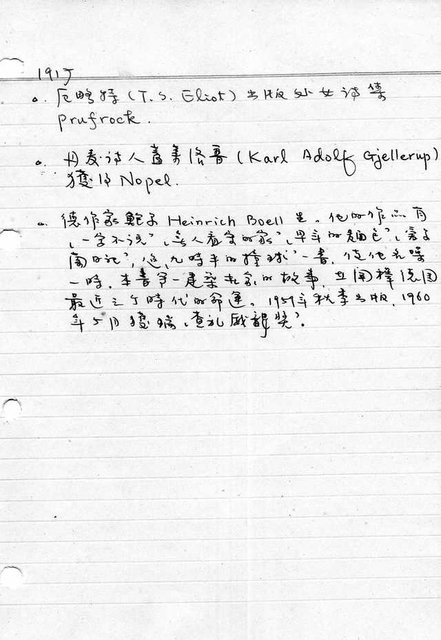 1917
厄略特(T.S. Eliot)出版处女诗集
Prufrock.
丹麦诗人盖美洛普(Karl Adolf Gjellerup)
获得Nopel.
德作家鲍予 Heinrich Boell 生。他的作品有
「一言不说」「无人看守的家」「早年的麵包」
闹日记」,这「九時半的撞球」一書,使他名噪
一時,本書爭一建筑世家的故事,
最近三个時代的命運。1959年秋季出版,1960
年5月獲瑞「查礼威龍獎」。